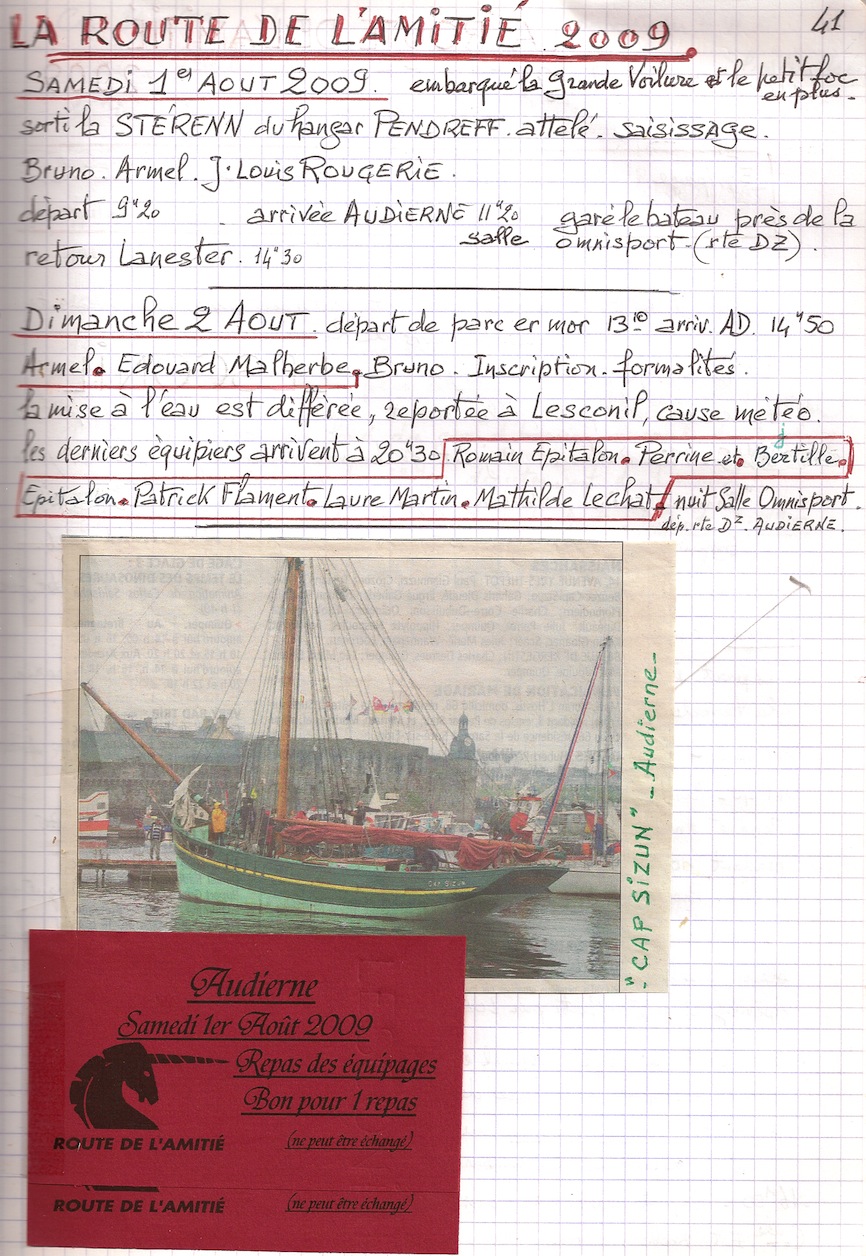 41
LA ROUTE DE L'AMITIÉ 2009.
SAMEDI 1er AOUT 2009. embarqué la grande Voilure et le petit foc
en plus.
sorti la STÉRENN du hangar PENDREFF. attelé. saisissage.
Bruno. Armel. J. Louis ROUGERIE.
départ 9H20 . arrivée AUDIERNE 11H20 garé le bateau près de la
salle omnisport (rte DZ).
retour Lanester. 14H30
Dimanche 2 AOUT. départ de parc er mor 13 10 arriv. AD. 14H50
Armel. Edouard Malherbe. Bruno. Inscription. formalités.
la mise à l'eau est différée, reportée à Lesconil, cause météo.
les derniers équipiers arrivent à 20H30 Romain Epitalon. Perrine et Bertille.
Epitalon. Patrick Flament. Laure Martin. Mathilde Lechat. nuit Salle Omnisport.
dép. rte DZ. AUDIERNE.
CAP SIZUN
"CAP SIZUN" - Audierne -
Audierne
Samedi 1er Août 2009
Repas des équipages
Bon pour 1 repas
ROUTE DE L'AMITIÉ (ne peut être échangé)
ROUTE DE L'AMITIÉ (ne peut être échangé)